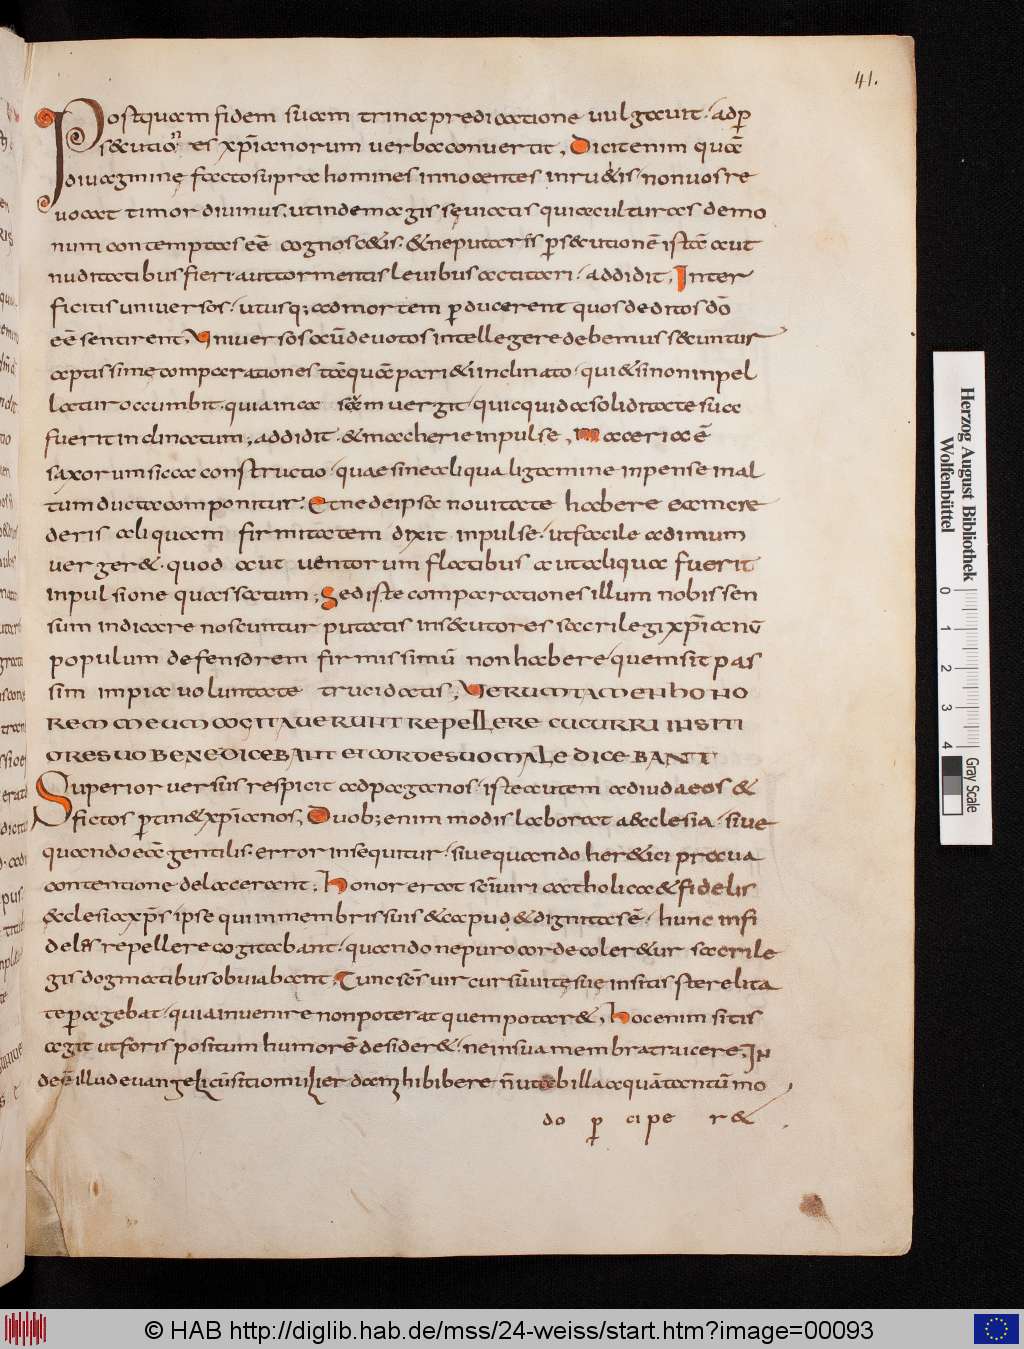 41.
Postquam fidem suam trina predicatione uulgauit · ad p̱
s&cutiores xp̄ianorum uerba conuertit, Dicit enim quā
diu agminę facto supra homines innocentes inru&is · non uos re
uocat timor diuinus, ut inde magis sęuiatis quia culturas demo
num contemptas eē cognoscitis · & ne putaris p̱s&cutionē istā aut
nuditatibus fieri · aut tormentis leuibus actitari · addidit, Inter
ficitis uniuersos · ut usq; ad mortem p̱ducerent quos deditos dō
eē sentirent, Uniuersos acū deuotos intellegere debemus s&cuntur
aptissimę comparationes tāquā pari&i inclinato · qui & si non inpel
latur occumbit · quia in ea sēm uergit · quicquid a soliditate sua
fuerit inclinatum; addidit · & macherie inpulse, maceria ē
saxorum sicca constructio · quae sine aliqua ligamine inpense in al
tum ducta componitur · Et ne de ipsa nouitate habere eam cre
deris aliquam firmitatem dixit inpulse · ut facile ad imum
uerger& · quod aut uentorum flatibus aut aliqua fuerit
inpulsione quassatum; Sed iste comparationes illum nobis sen
sum indicare noscuntur putatis ins&cutores sacrilegi xp̄ianū
populum defensorem firmissimū non habere · quem sit pas
sim impia uoluntate trucidatis, UERUMTAMEN HONO
REM MEUM COGITAUERUNT REPELLERE CUCURRI IN SITI
ORE SUO BENEDICEBANT ET CORDE SUO MALEDICEBANT
Superior uersus respicit ad paganos · iste autem ad iudaeos &
fictos p̱tin& xp̄ianos, Duob; enim modis laborat aecclesia · siue
quando eā gentilis error insequitur · siue quando her&ici praua
contentione delacerant; Honor erat sc̄i uiri catholica & fidelis
ęclesia xp̄s ipse qui in membris suis & caput & dignitas ē · hunc infi
deles repellere cogitabant · quando ne puro corde coler&ur sacrile
gis dogmatibus obuiabant, Tunc sc̄s uir cursū uitę suę in sitis sterelita
te p̱agebat · quia inuenire non poterat quem potar&, Hoc enim sitis
agit ut foris positum humorē desider& · ne in sua membra traicere, In
de ē illud euangelicū sitio mulier da mihi bibere n̄ ut ab illa aquā tantū mo
do p̱ cipe r&
Herzog August Bibliothek
Wolfenbüttel
0 1 2 3 4
Gray Scale
© HAB http://diglib.hab.de/mss/24-weiss/start.htm?image=00093